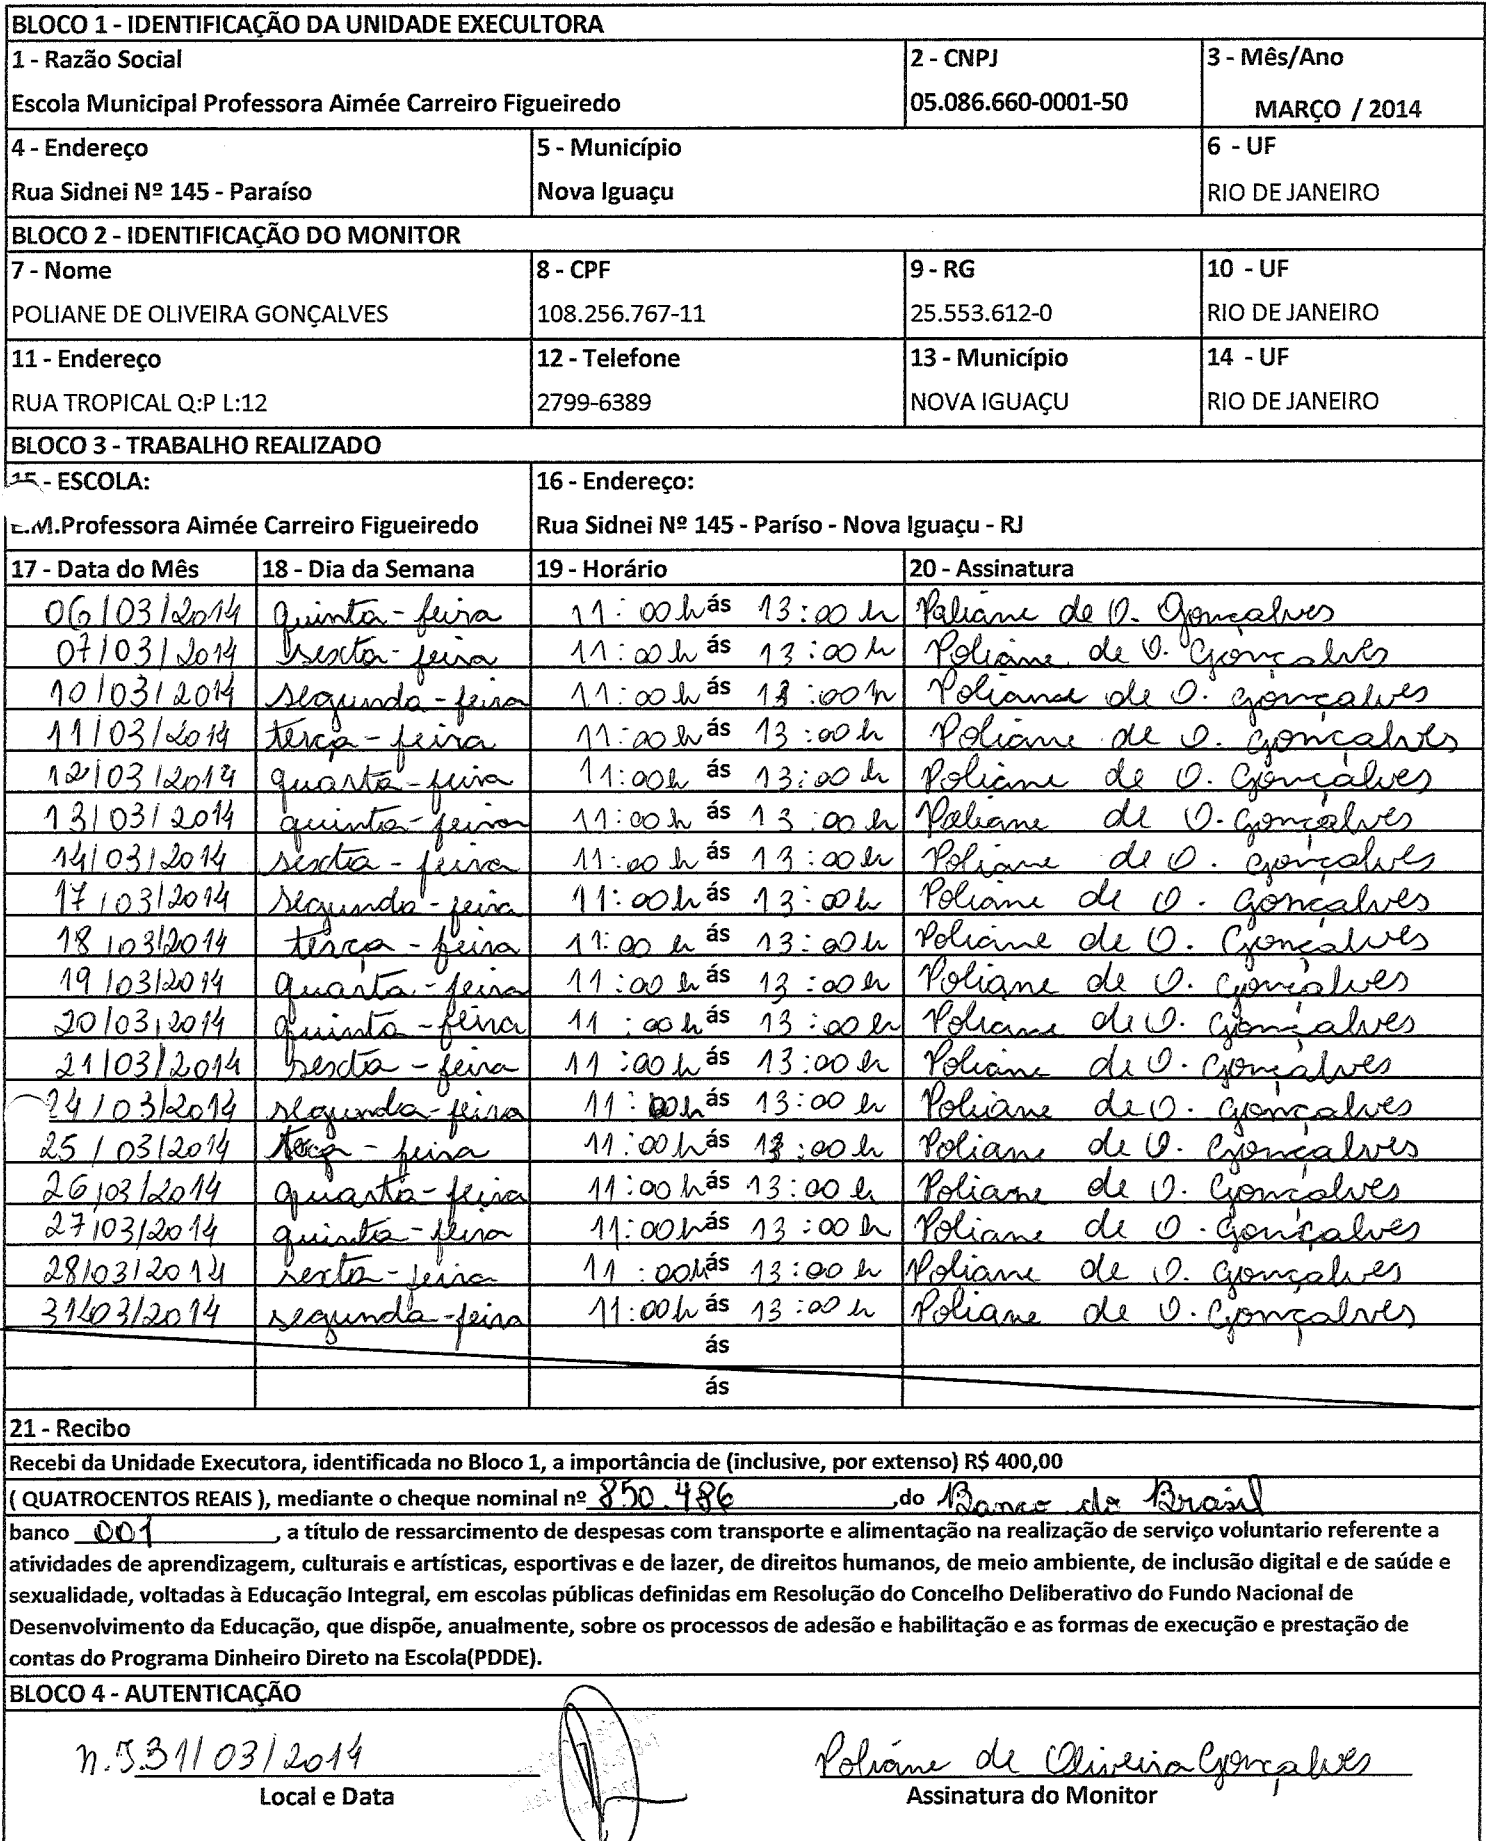 BLOCO 1 - IDENTIFICAÇÃO DA UNIDADE EXECULTORA
1 - Razão Social 2 - CNPJ 3 - Mês/Ano
Escola Municipal Professora Aimée Carreiro Figueiredo 05.086.660-0001-50 MARÇO / 2014
4 - Endereço 5 - Município 6 - UF
Rua Sidnei Nº 145 - Paraíso Nova Iguaçu RIO DE JANEIRO
BLOCO 2 - IDENTIFICAÇÃO DO MONITOR
7 - Nome 8 - CPF 9 - RG 10 - UF
POLIANE DE OLIVEIRA GONÇALVES 108.256.767-11 25.553.612-0 RIO DE JANEIRO
11 - Endereço 12 - Telefone 13 - Município 14 - UF
RUA TROPICAL Q:P L:12 2799-6389 NOVA IGUAÇU RIO DE JANEIRO
BLOCO 3 - TRABALHO REALIZADO
15 - ESCOLA: 16 - Endereço:
E.M.Professora Aimée Carreiro Figueiredo Rua Sidnei Nº 145 - Paríso - Nova Iguaçu - RJ
17 - Data do Mês 18 - Dia da Semana 19 - Horário 20 - Assinatura
06/03/2014 quinta-feira 11:00h ás 13:00h Poliane de O. Gonçalves
07/03/2014 sexta-feira 11:00h ás 13:00h Poliane de O. Gonçalves
10/03/2014 segunda-feira 11:00h ás 13:00h Poliane de O. Gonçalves
11/03/2014 terça-feira 11:00h ás 13:00h Poliane de O. Gonçalves
12/03/2014 quarta-feira 11:00h ás 13:00h Poliane de O. Gonçalves
13/03/2014 quinta-feira 11:00h ás 13:00h Poliane de O. Gonçalves
14/03/2014 sexta-feira 11:00h ás 13:00h Poliane de O. Gonçalves
17/03/2014 segunda-feira 11:00h ás 13:00h Poliane de O. Gonçalves
18/03/2014 terça-feira 11:00h ás 13:00h Poliane de O. Gonçalves
19/03/2014 quarta-feira 11:00h ás 13:00h Poliane de O. Gonçalves
20/03/2014 quinta-feira 11:00h ás 13:00h Poliane de O. Gonçalves
21/03/2014 sexta-feira 11:00h ás 13:00h Poliane de O. Gonçalves
24/03/2014 segunda-feira 11:00h ás 13:00h Poliane de O. Gonçalves
25/03/2014 terça-feira 11:00h ás 13:00h Poliane de O. Gonçalves
26/03/2014 quarta-feira 11:00h ás 13:00h Poliane de O. Gonçalves
27/03/2014 quinta-feira 11:00h ás 13:00h Poliane de O. Gonçalves
28/03/2014 sexta-feira 11:00h ás 13:00h Poliane de O. Gonçalves
31/03/2014 segunda-feira 11:00h ás 13:00h Poliane de O. Gonçalves
ás
ás
21 - Recibo
Recebi da Unidade Executora, identificada no Bloco 1, a importância de (inclusive, por extenso) R$ 400,00
( QUATROCENTOS REAIS ), mediante o cheque nominal nº 850.486 ,do Banco do Brasil
banco 001 , a título de ressarcimento de despesas com transporte e alimentação na realização de serviço voluntario referente a
atividades de aprendizagem, culturais e artísticas, esportivas e de lazer, de direitos humanos, de meio ambiente, de inclusão digital e de saúde e
sexualidade, voltadas à Educação Integral, em escolas públicas definidas em Resolução do Concelho Deliberativo do Fundo Nacional de
Desenvolvimento da Educação, que dispõe, anualmente, sobre os processos de adesão e habilitação e as formas de execução e prestação de
contas do Programa Dinheiro Direto na Escola(PDDE).
BLOCO 4 - AUTENTICAÇÃO
n.I.31/03/2014 Poliane de Oliveira Gonçalves
Local e Data Assinatura do Monitor